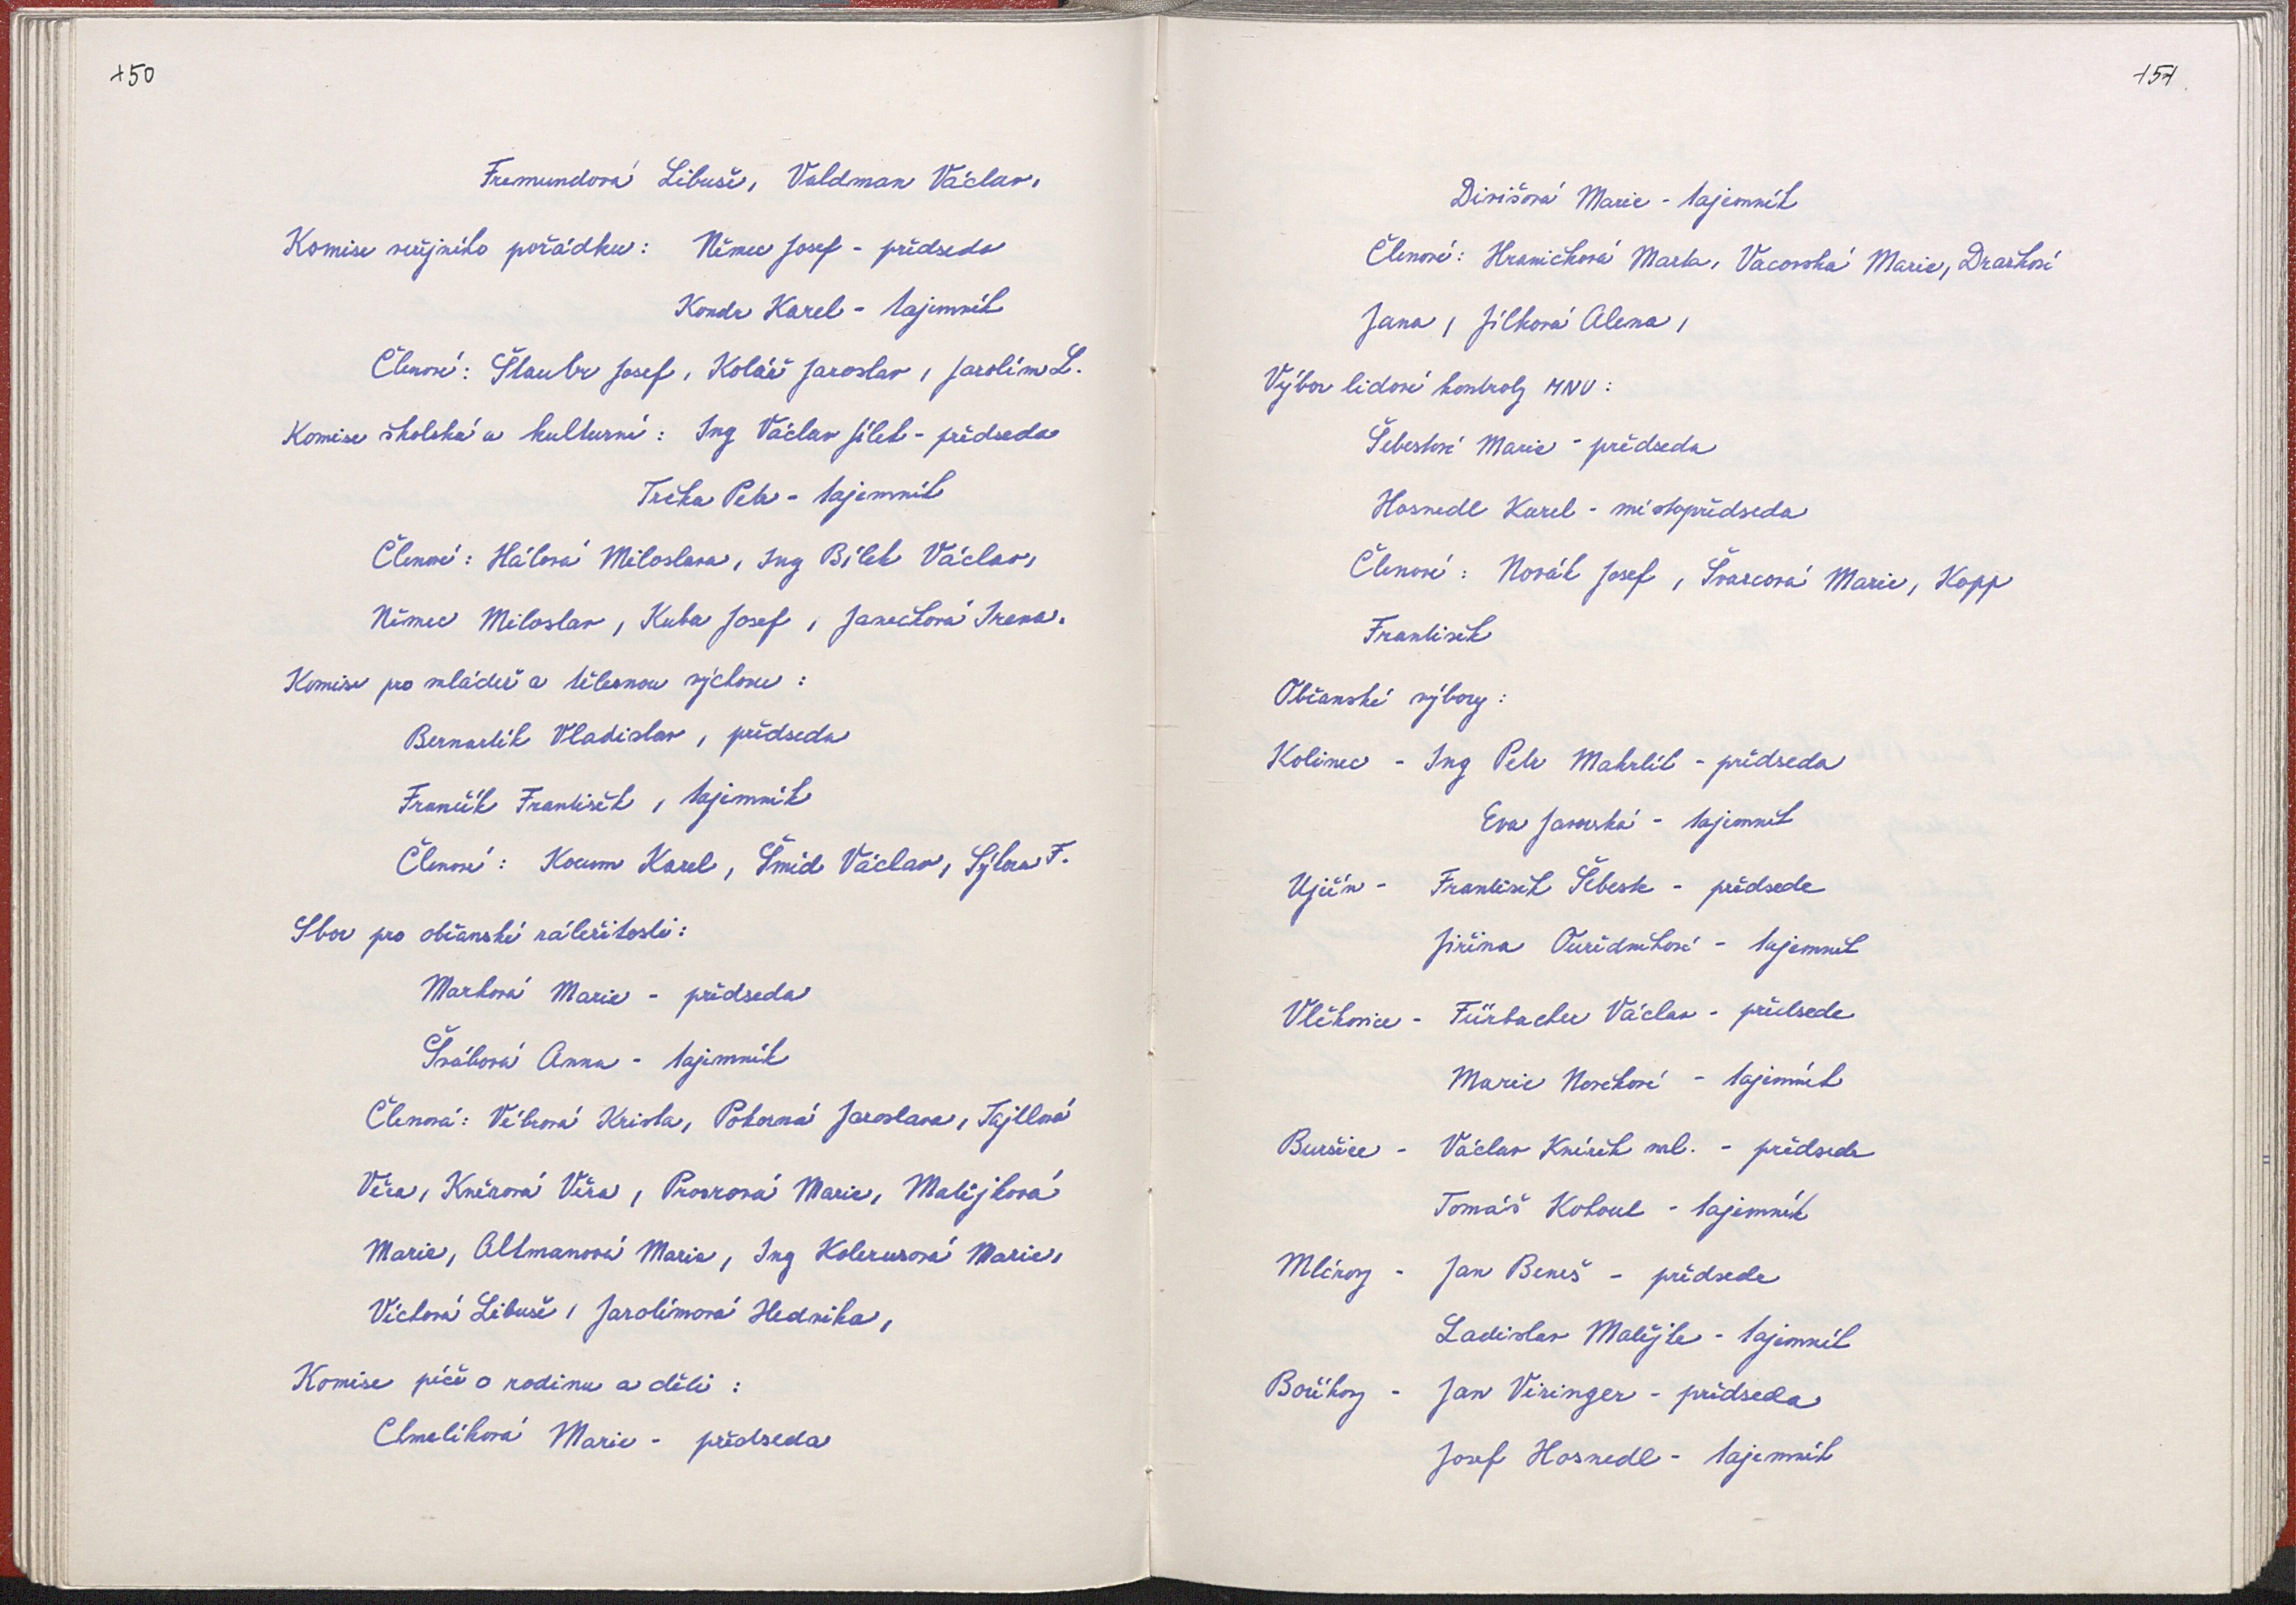 150
Fremundová Libuše, Valdman Václav,
Komise veřejného pořádku: Němec Josef - předseda
Konda Karel - tajemník
Členové: Štaubr Josef, Kolář Jaroslav, Jarolím L.
Komise školská a kulturní: Ing Václav Jílek - předseda
Trčka Petr - tajemník
Členové: Hálová Miloslava, Ing Bílek Václav,
Němec Miloslav, Kuba Josef, Janečková Irena.
Komise pro mládež a tělesnou výchovu:
Bernartík Vladislav, předseda
Frančík František, tajemník
Členové: Kocum Karel, Šmíd Václav, Sýkora F.
Sbor pro občanské záležitosti:
Marková Marie - předseda
Švábová Anna - tajemník
Členové: Vébrová Krista, Pokorná Jaroslava, Tajtlová
Věra, Knězová Věra, Proxová Marie, Matějková
Marie, Altmanová Marie, Ing Kolerusová Marie,
Víchová Libuše, Jarolímová Hedvika,
Komise péče o rodinu a děti:
Chmelíková Marie - předseda
151
Divišová Marie - tajemník
Členové: Hraničková Marta, Vacovská Marie, Dražková
Jana, Jílková Alena,
Výbor lidové kontroly MNV:
Šebestová Marie - předseda
Hosnedl Karel - místopředseda
Členové: Novák Josef, Švarcová Marie, Kopp
František
Občanské výbory:
Kolinec - Ing Petr Makrlík - předseda
Eva Javorská - tajemník
Ujčín - František Šebesta - předseda
Jiřina Ouředníková - tajemník
Vlčkovice - Fürbacher Václav - předseda
Marie Nováková - tajemník
Buršice - Václav Knížek ml. - předseda
Tomáš Kohout - tajemník
Mlázovy - Jan Beneš - předseda
Ladislav Matějka - tajemník
Boříkovy - Jan Viringer - předseda
Josef Hosnedl - tajemník